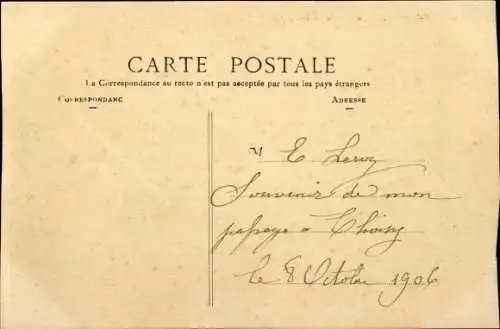 CARTE POSTALE
La Correspondance au recto n'est pas acceptée par tous les pays étrangers
CORRESPONDANC
ADRESSE
M E Leroy
Souvenir de mon
à Choisy
le 8 Octobre 1906